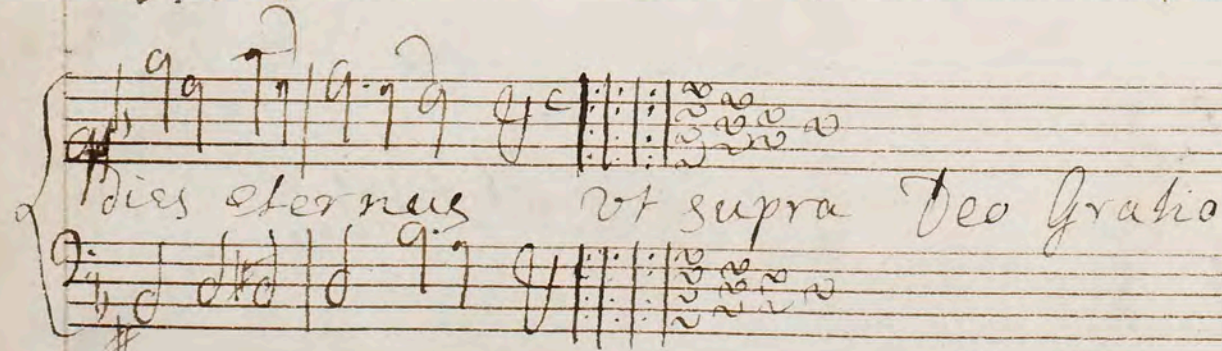 dies eternus vt supra Deo Gratio